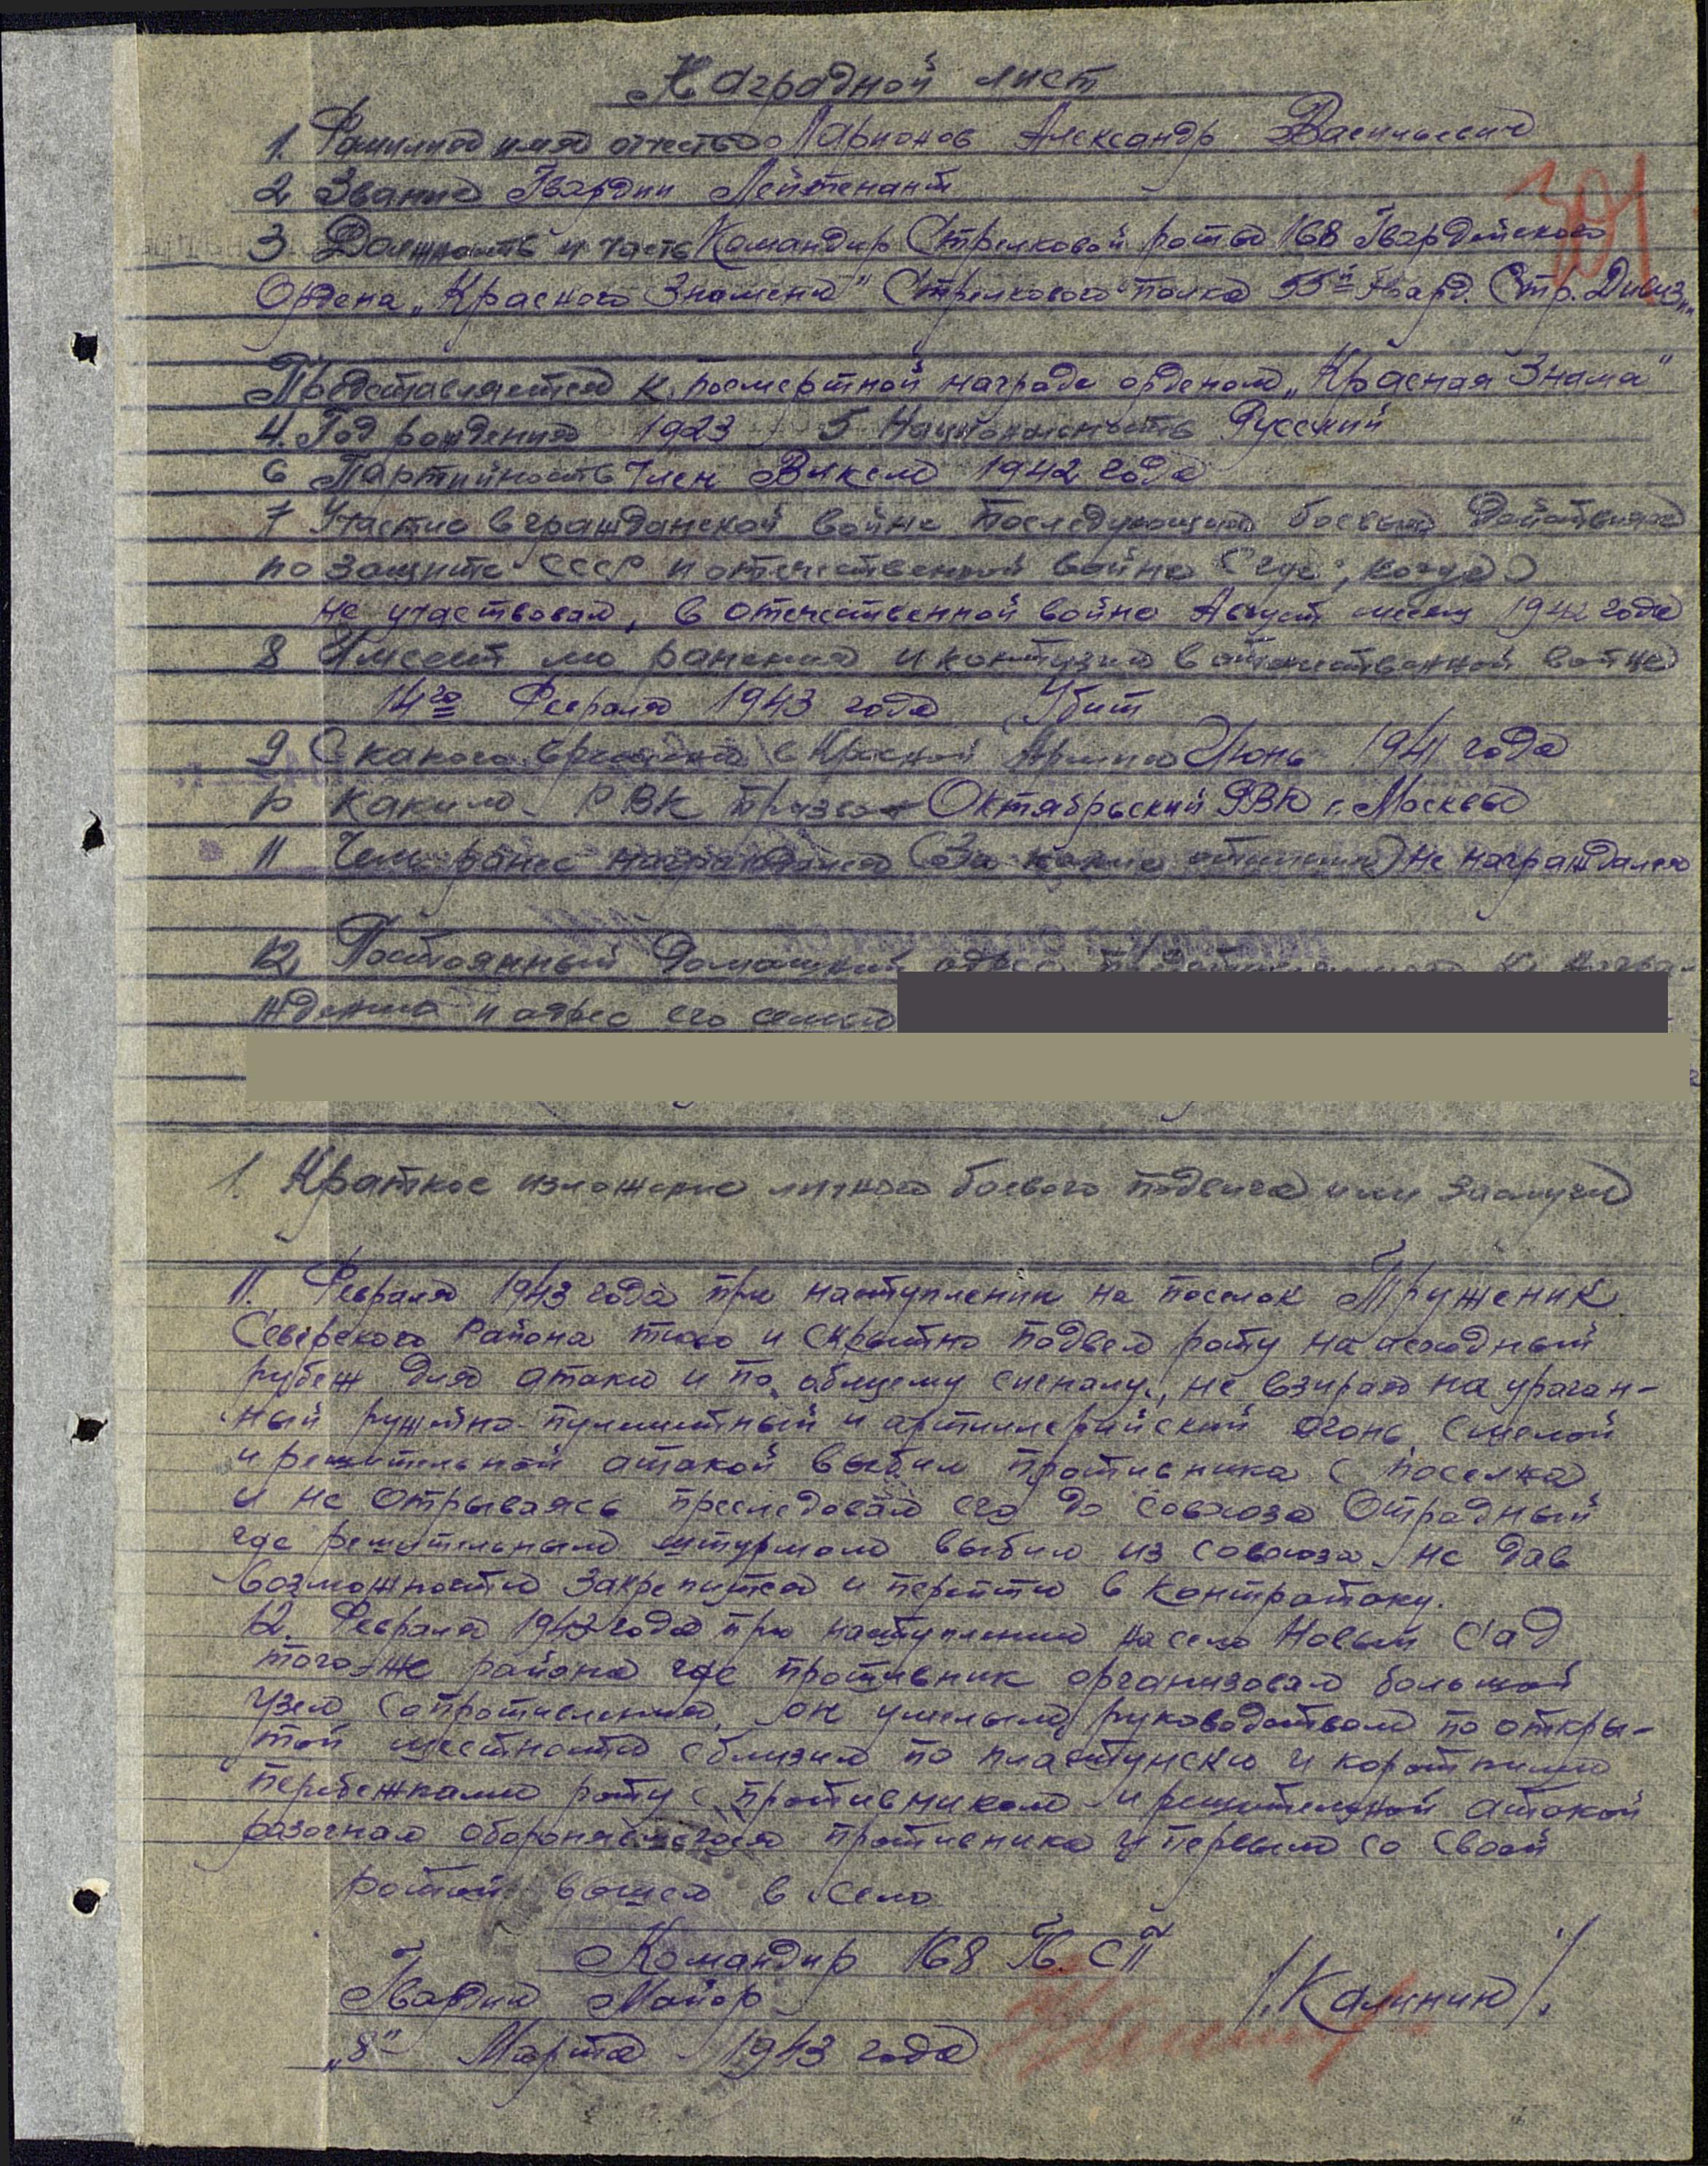 Наградной лист
1. Фамилия имя отчество Ларионов Александр Васильевич
2 Звание Гвардии Лейтенант
301
3. Должность и часть Командир Стрелковой роты 168 Гвардейского
Ордена "Красного Знамени" Стрелкового полка 55й Гвард. Стр. Дивизии
Представляется к посмертной награде орденом "Красная Знамя"
4. Год рождения 1923 5 Национальность Русский
6 Партийность Член Влксм 1942 года
7 Участие в гражданской войне последующих боевых действиях
по защите СССР и отечественной войне (где, когда)
не участвовал, в отечественной войне Август месяц 1942 года
8 Имеет ли ранения и контузии в отечественной войне
14го Февраля 1943 года Убит
9 С какого времени в Красной Армии Июнь 1941 года
10 Каким РВК призван Октябрьский РВК г. Москвы
11 Чем ранее награждался (За какие отличия) не награждался
12 Постоянный домашний адрес представляемого к награ-
ждению и адрес его семьи
1. Краткое изложение личного боевого подвига или заслуги
11. Февраля 1943 года при наступлении на поселок Труженик
Северского района тихо и скрытно подвел роту на исходный
рубеж для атаки и по общему сигналу, не взирая на ураган-
ный ружейно-пулеметный и артиллерийский огонь смелой
и решительной атакой выбил противника с поселка
и не отрываясь преследовал его до совхоза Отрадный
где решительным штурмом выбил из совхоза не дав
возможности закрепится и перейти в контратаку.
12. Февраля 1943 года при наступлении на село Новый Сад
того-же района где противник организовал большой
узел сопротивления, он умелым руководством по откры-
той местности сблизил по пластунски и короткими
перебежками роту с противником и решительной атакой
разогнал оборонявшегося противника и первым со своей
ротой вошел в село
Командир 168 Гв. СП
Гвардии Майор /Калинин/.
"8" Марта 1943 года